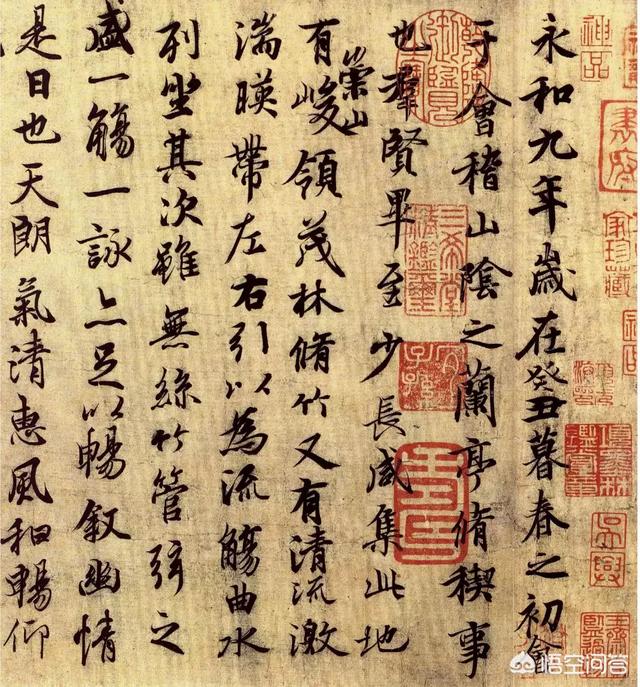 永和九年歲在癸丑暮春之初會
于會稽山陰之蘭亭脩稧事
也羣賢畢至少長咸集此地
有崇山峻領茂林脩竹又有清流激
湍暎帶左右引以為流觴曲水
列坐其次雖無絲竹管弦之
盛一觴一詠亦足以暢敘幽情
是日也天朗氣清惠風和暢仰
神品
家珍藏
悟空问答